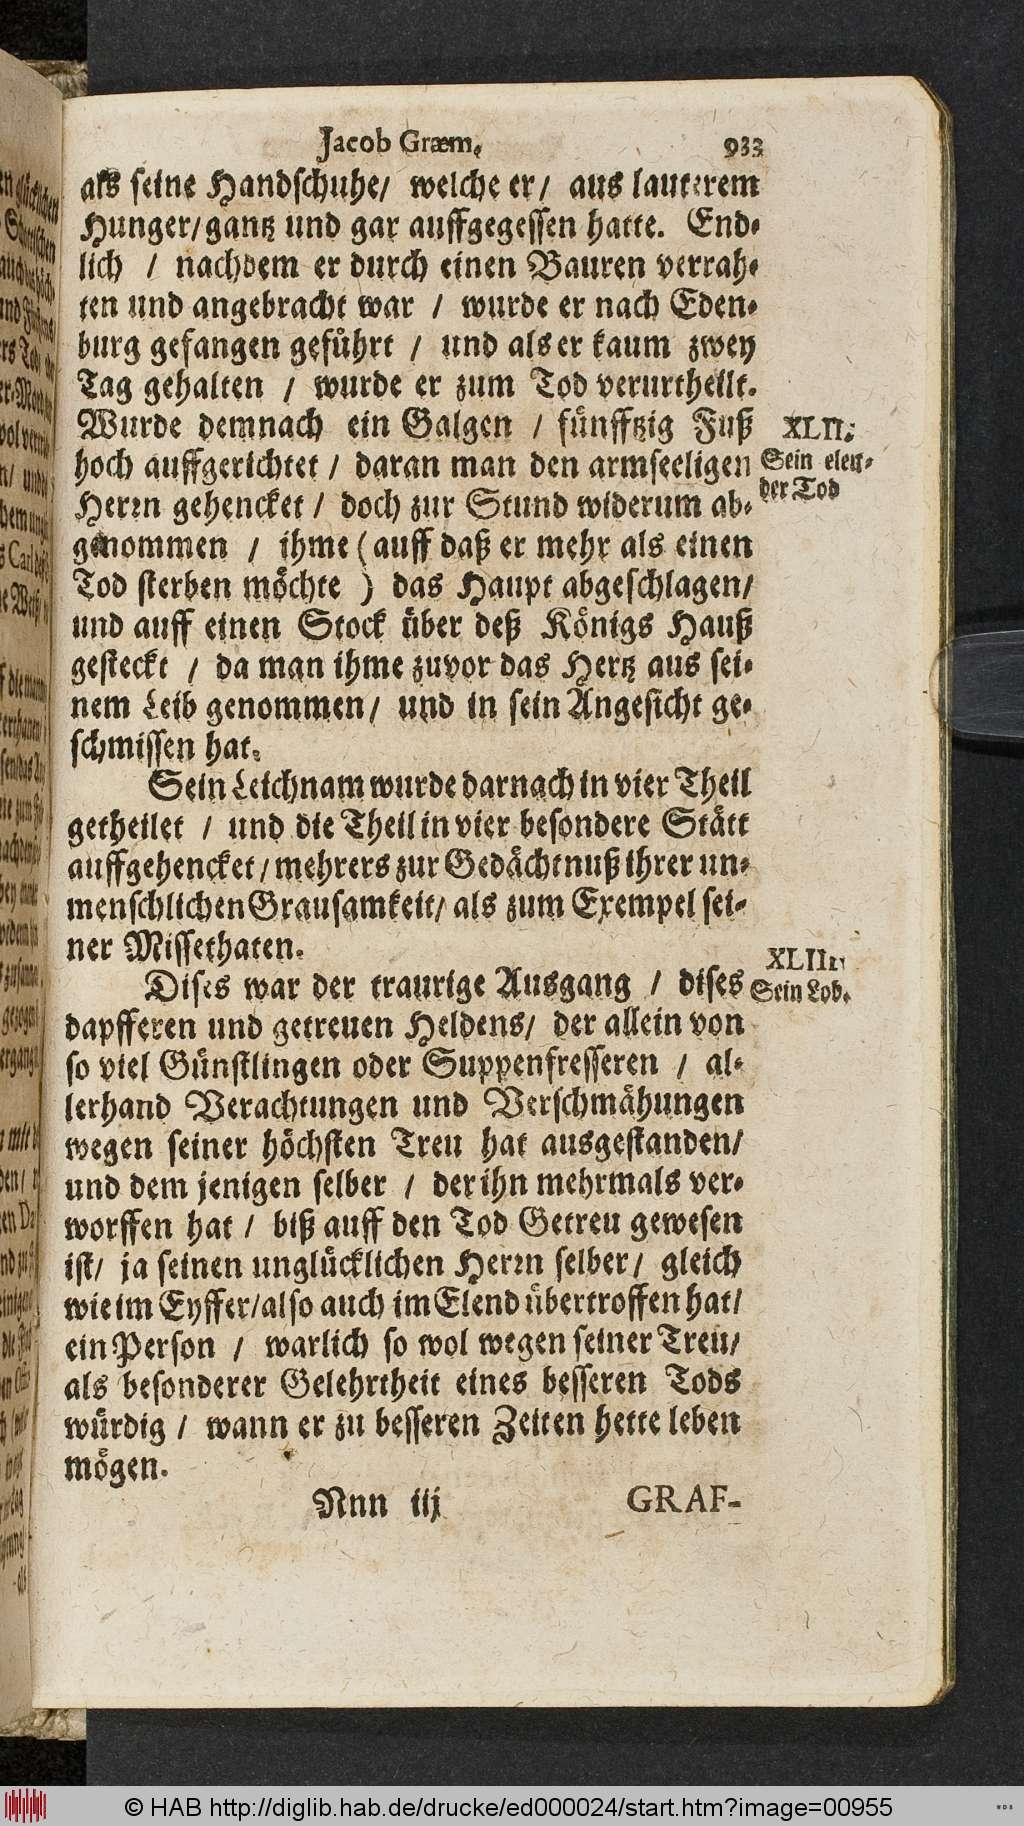 Jacob Græm. 933
als seine Handschuhe/ welche er/ aus lauterem
Hunger/gantz und gar auffgegessen hatte. End-
lich / nachdem er durch einen Bauren verrah-
ten und angebracht war / wurde er nach Eden-
burg gefangen geführt / und als er kaum zwey
Tag gehalten / wurde er zum Tod verurtheilt.
Wurde demnach ein Galgen / fünfftzig Fuß
hoch auffgerichtet / daran man den armseeligen
Herrn gehencket / doch zur Stund widerum ab-
genommen / ihme (auff daß er mehr als einen
Tod sterben möchte ) das Haupt abgeschlagen/
und auff einen Stock über deß Königs Hauß
gesteckt / da man ihme zuvor das Hertz aus sei-
nem Leib genommen/ und in sein Angesicht ge-
schmissen hat.
XLII.
Sein elen-
der Tod
Sein Leichnam wurde darnach in vier Theil
getheilet / und die Theil in vier besondere Stätt
auffgehencket/ mehrers zur Gedächtnuß ihrer un-
menschlichen Grausamkeit/ als zum Exempel sei-
ner Missethaten.
Dises war der traurige Ausgang / dises
dapfferen und getreuen Heldens/ der allein von
so viel Günstlingen oder Suppenfresseren / al-
lerhand Verachtungen und Verschmähungen
wegen seiner höchsten Treu hat ausgestanden/
und dem jenigen selber / der ihn mehrmals ver-
worffen hat / biß auff den Tod Getreu gewesen
ist/ ja seinen unglücklichen Herrn selber/ gleich
wie im Eyffer/also auch im Elend übertroffen hat/
ein Person / warlich so wol wegen seiner Treu/
als besonderer Gelehrtheit eines besseren Tods
würdig / wann er zu besseren Zeiten hette leben
mögen.
XLIII.
Sein Lob.
Nnn iij GRAF-
© HAB http://diglib.hab.de/drucke/ed000024/start.htm?image=00955